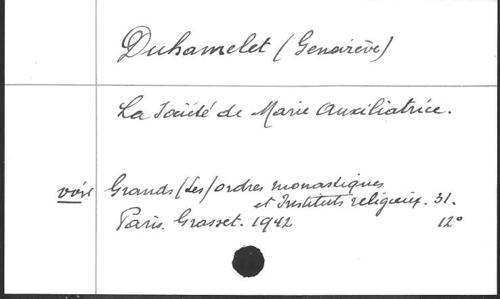 Duhamelet (Geneviève)
La Société de Marie Auxiliatrice.
voir Grands (Les) ordres monastiques
et Instituts religieux. 31.
Paris. Grasset. 1942 12°